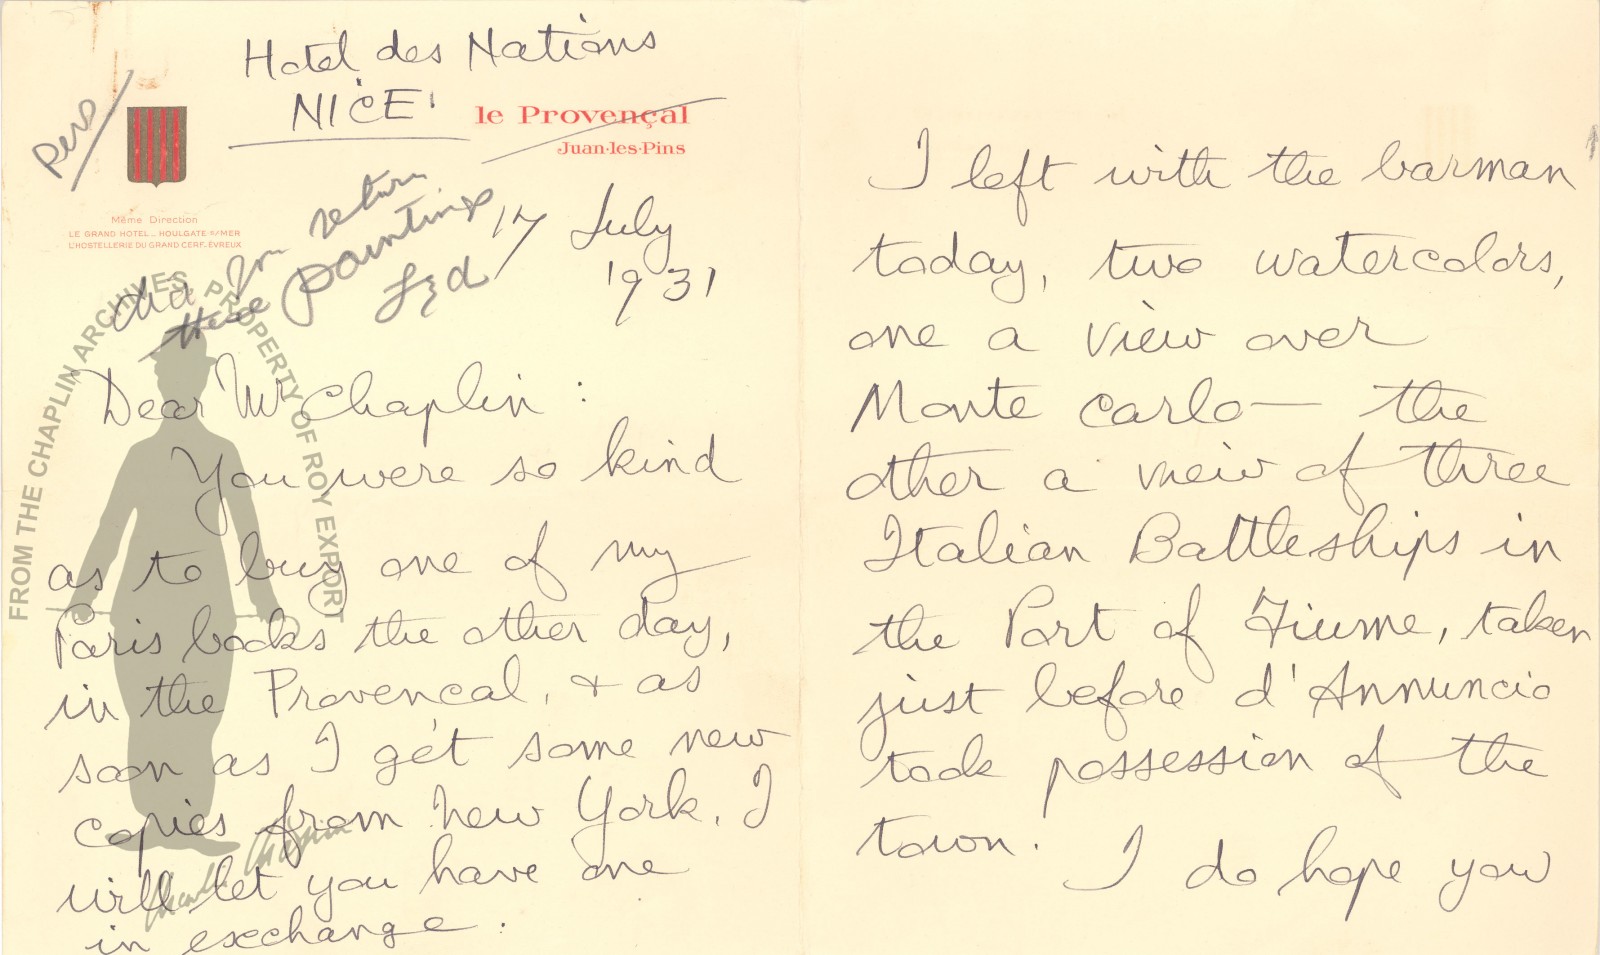 Hotel des Nations
NICE
le Provençal
Juan-les-Pins
Pers
Même Direction
LE GRAND HOTEL _ HOULGATE S/MER
L'HOSTELLERIE DU GRAND CERF_ÉVREUX
did you return
these paintings
17 July
1931
Dear Mr Chaplin :
You were so kind
as to buy one of my
Paris books the other day,
in the Provencal, & as
soon as I get some new
copies from New York, I
will let you have one
in exchange.
I left with the barman
today, two watercolors,
one a view over
Monte Carlo — the
other a view of three
Italian Battleships in
the Port of Fiume, taken
just before d'Annuncio
took possession of the
town.
I do hope you
FROM THE CHAPLIN ARCHIVES, PROPERTY OF ROY EXPORT